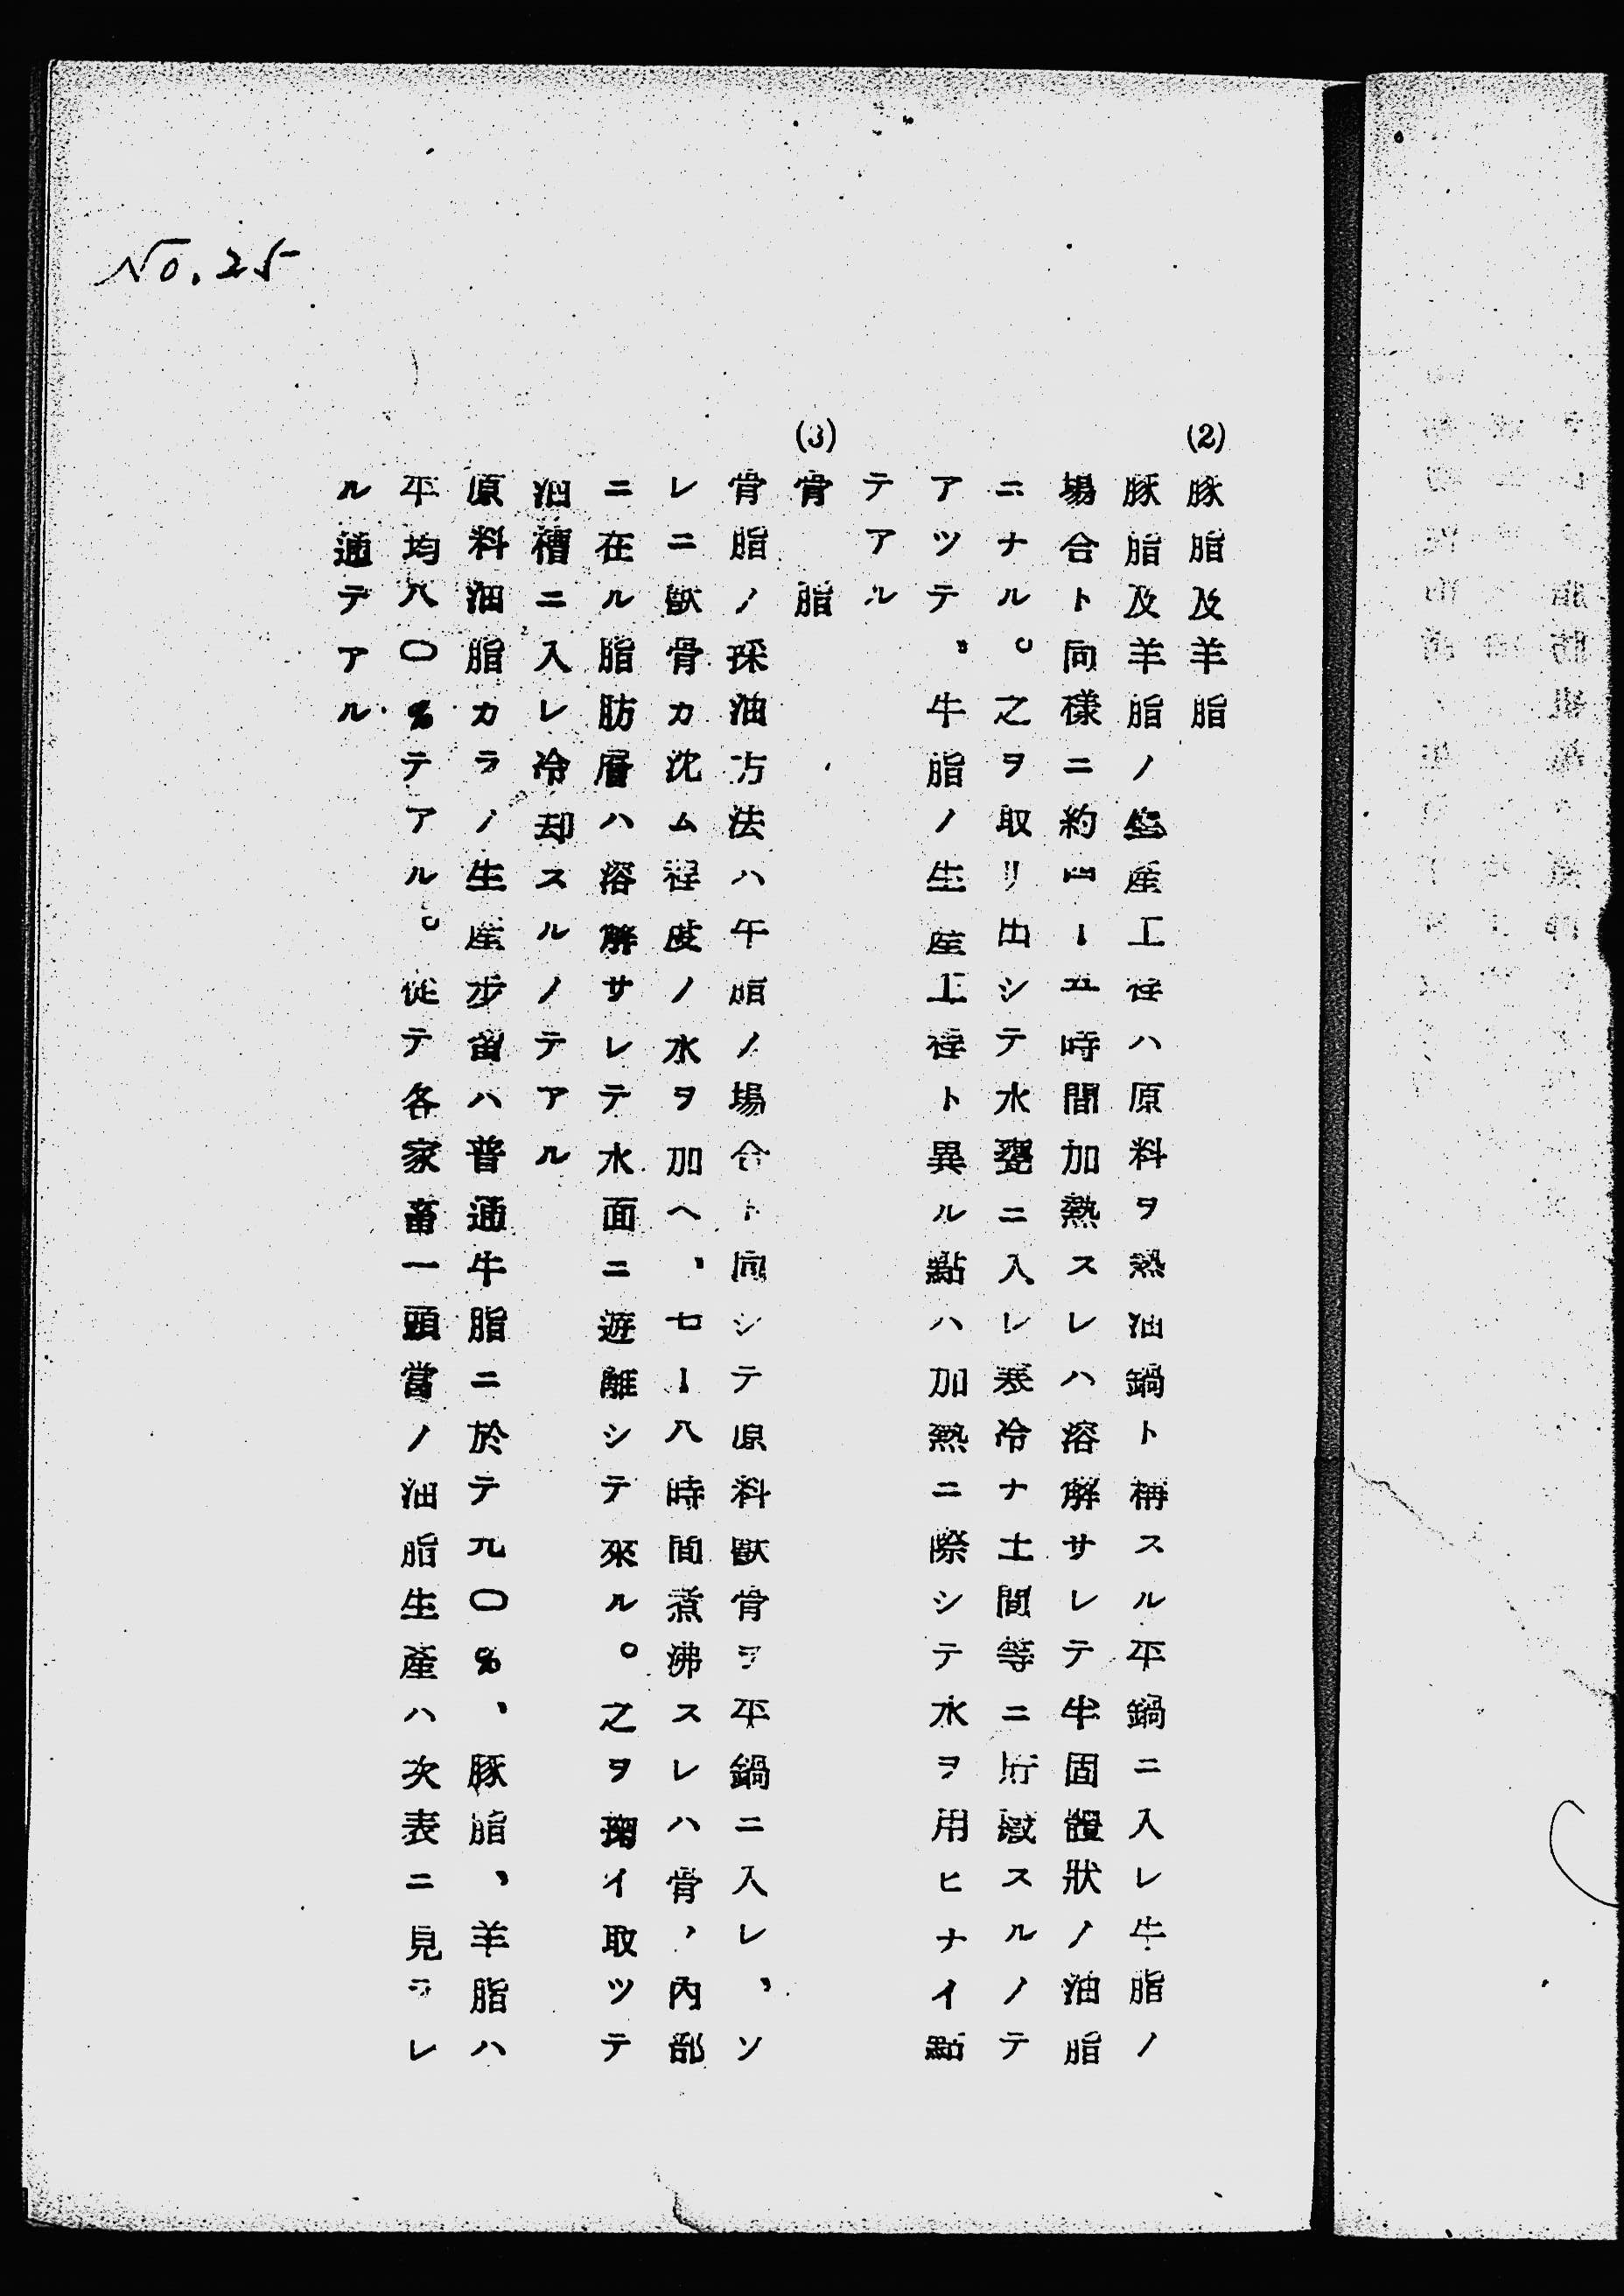 No. 25
(2) 豚脂及羊脂
豚脂及羊脂ノ生産工程ハ原料ヲ熱油鍋ト稱スル平鍋ニ入レ牛脂ノ
場合ト同樣ニ約四ー五時間加熱スレハ溶解サレテ半固體狀ノ油脂
ニナル。之ヲ取リ出シテ水甕ニ入レ寒冷ナ土間等ニ貯藏スルノテ
アツテ、牛脂ノ生産工程ト異ル點ハ加熱ニ際シテ水ヲ用ヒナイ點
テアル
(3) 骨脂
骨脂ノ採油方法ハ牛脂ノ場合ト同シテ原料獸骨ヲ平鍋ニ入レ、ソ
レニ獸骨カ沈ム程度ノ水ヲ加ヘ、七ー八時間煮沸スレハ骨、內部
ニ在ル脂肪層ハ溶解サレテ水面ニ遊離シテ來ル。之ヲ掬イ取ツテ
油槽ニ入レ冷却スルノテアル
原料油脂カラノ生産步留ハ普通牛脂ニ於テ九〇%、豚脂、羊脂ハ
平均八〇%テアル。從テ各家畜一頭當ノ油脂生產ハ次表ニ見ラレ
ル通テアル